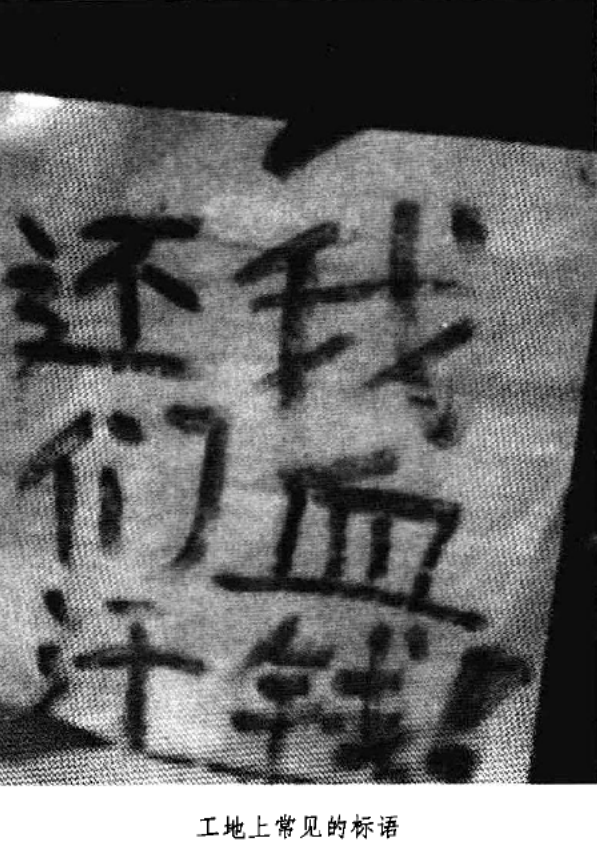 还我
们血
汗钱!
工地上常见的标语